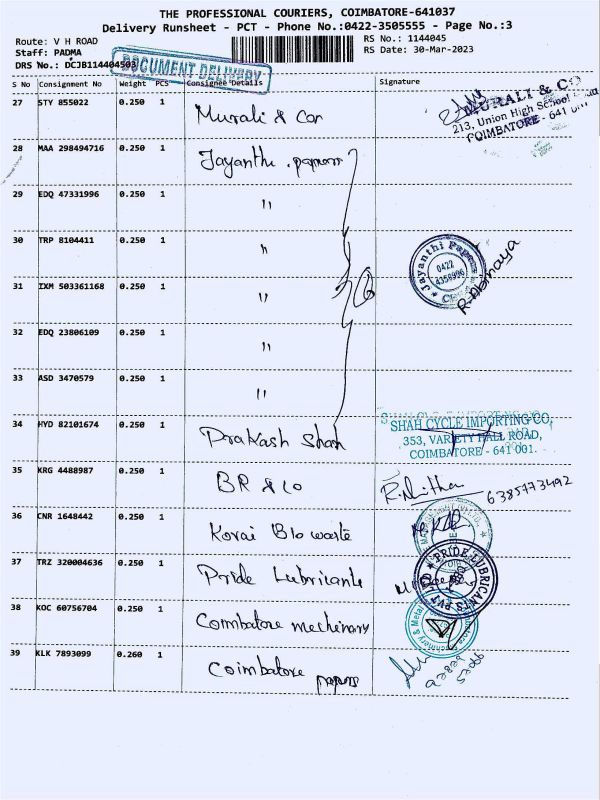 THE PROFESSIONAL COURIERS, COIMBATORE-641037
Delivery Runsheet - PCT - Phone No.:0422-3505555 - Page No.:3
Route: V H ROAD
RS No.: 1144045
Staff: PADMA
RS Date: 30-Mar-2023
DRS No.: DCJB114404503
DOCUMENT DELIVERY
S No Consignment No Weight PCS Consignee Details Signature
27 STY 855022 0.250 1 Murali & Co
MURALI & CO
213, Union High School
COIMBATORE - 641
28 MAA 298494716 0.250 1 Jayanthi papers
29 EDQ 47331996 0.250 1 "
30 TRP 8104411 0.250 1 "
Jayanthi Papers
0422
4350996
R. Abinaya
31 IXM 503361168 0.250 1 "
32 EDQ 23806109 0.250 1 "
33 ASD 3470579 0.250 1 "
34 HYD 82101674 0.250 1 Prakash Shah
SHAH CYCLE IMPORTING CO,
353, VARIETY HALL ROAD,
COIMBATORE - 641 001.
35 KRG 4488987 0.250 1 BR & Co
6385773492
36 CNR 1648442 0.250 1 Kovai Bio waste
37 TRZ 320004636 0.250 1 Pride Lubricants
PRIDE LUBRICANTS PVT LTD
38 KOC 60756704 0.250 1 Coimbatore mechinary
39 KLK 7893099 0.260 1 Coimbatore papers